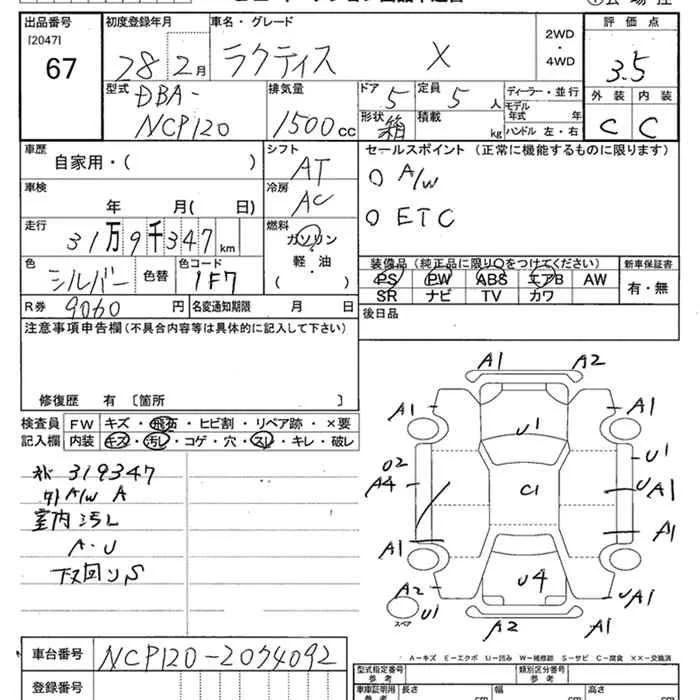 出品番号
[2047]
67
初度登録年月
28年2月
車名・グレード
ラクティス X
2WD
・
4WD
評価点
3.5
外装 内装
C C
型式
DBA-
NCP120
排気量
1500cc
ドア 5
定員 5人
形状 箱
積載 kg
ディーラー・並行
モデル年式 年
ハンドル 左・右
車歴
自家用・( )
シフト
AT
車検
年 月( 日)
冷房
AC
走行
31万9千347km
燃料
ガソリン
軽・油
( )
色
シルバー 色替
色コード
1F7
R券 9060円
名変通知期限 月 日
セールスポイント (正常に機能するものに限ります)
○ A/W
○ ETC
装備品(純正品に限り○をつけてください)
新車保証書
PS PW ABS エアB AW
有・無
SR ナビ TV カワ
後日品
注意事項申告欄(不具合内容等は具体的に記入して下さい)
修復歴 有〔箇所 〕
検査員
記入欄
FW キズ・飛石・ヒビ割・リペア跡・×要
内装 キズ・汚レ・コゲ・穴・スレ・キレ・破レ
319347
A/W A
室内汚レ
A・U
下回リS
A1 A2
A1 A1
U1
U2
A4
C1
U1
UA1
A1
A1
A2
U4
UA1
U1
スペア
A2 A1
A-キズ E-エクボ U-凹み W-補修跡 S-サビ C-腐食 ××-交換済
車台番号
NCP120-2074092
登録番号
型式指定番号
参考
類別区分番号
参考
車庫証明用
参考
長さ cm
幅 cm
高さ cm